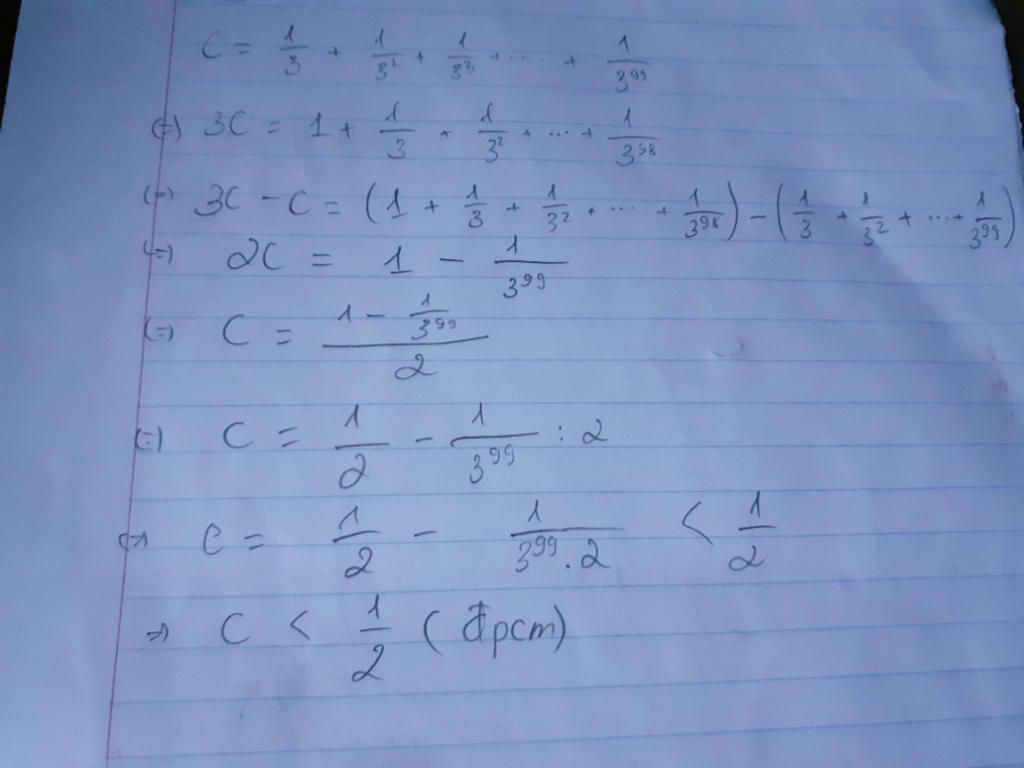 C = 1/3 + 1/3² + 1/3³ + .... + 1/3⁹⁹
(=) 3C = 1 + 1/3 + 1/3² + ... + 1/3⁹⁸
(=) 3C - C = (1 + 1/3 + 1/3² + ... + 1/3⁹⁸) - (1/3 + 1/3² + ... + 1/3⁹⁹)
(=) 2C = 1 - 1/3⁹⁹
(=) C = (1 - 1/3⁹⁹)/2
(=) C = 1/2 - 1/3⁹⁹ : 2
(=) C = 1/2 - 1/(3⁹⁹.2) < 1/2
=) C < 1/2 (đpcm)